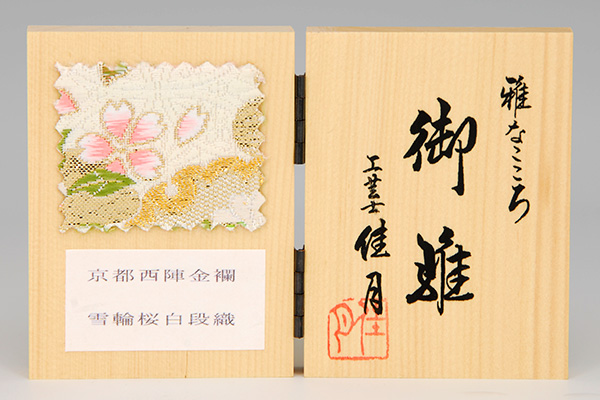 京都西陣金襴
雪輪桜白段織
雅なこころ
御雛
工芸士 佳月